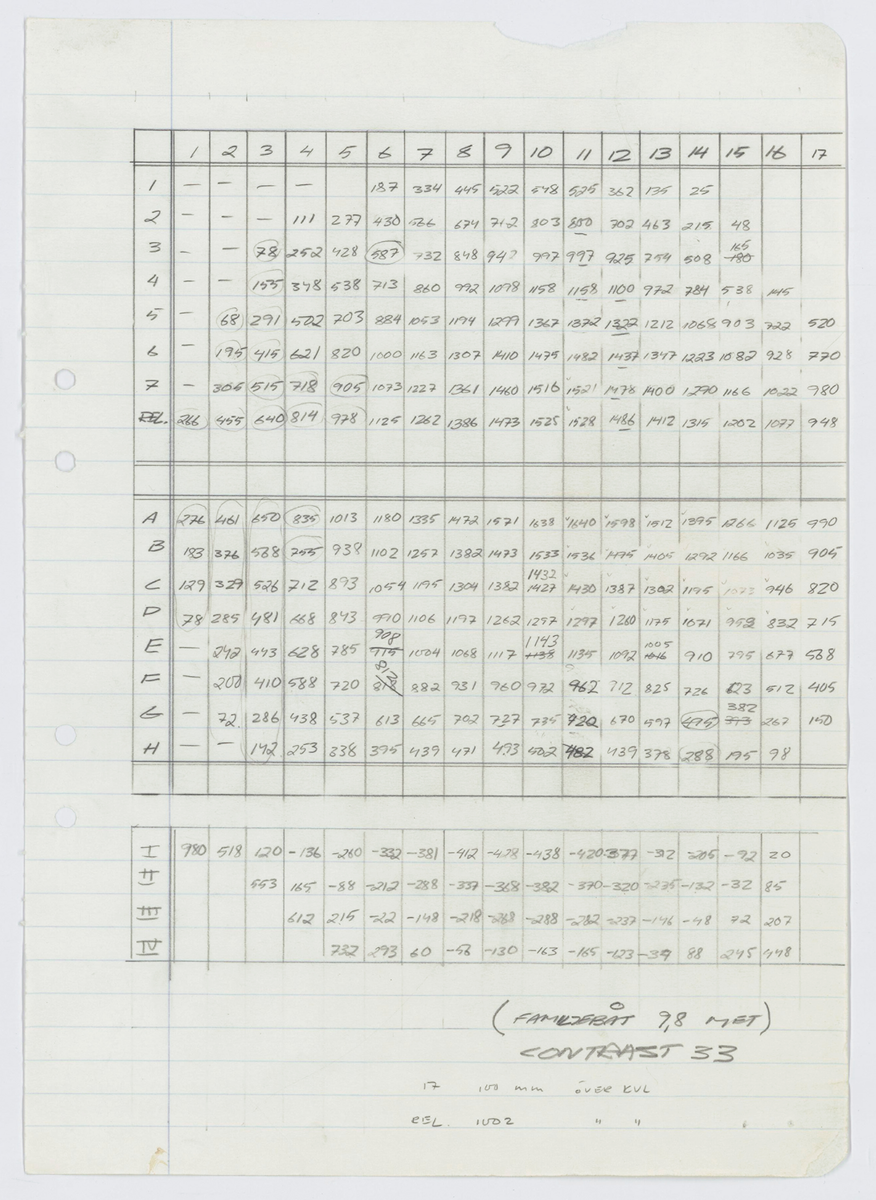 1 2 3 4 5 6 7 8 9 10 11 12 13 14 15 16 17
1 — — — — 187 334 445 522 548 525 362 135 25
2 — — — 111 277 430 566 674 712 803 800 702 463 215 48
165
3 — — 78 252 428 587 732 848 942 997 997 925 754 508 180
4 — — 155 348 538 713 860 992 1098 1158 1158 1100 972 784 538 145
5 — 68 291 502 703 884 1053 1194 1299 1367 1372 1322 1212 1068 903 722 520
6 — 195 415 621 820 1000 1163 1307 1410 1475 1482 1437 1347 1223 1082 928 770
7 — 305 515 718 905 1073 1227 1361 1460 1516 1521 1478 1400 1290 1166 1022 980
REL. 266 455 640 814 978 1125 1262 1386 1473 1525 1528 1486 1412 1315 1202 1077 948
A 276 461 650 835 1013 1180 1335 1472 1571 1638 1640 1598 1512 1395 1266 1125 990
B 183 376 568 755 938 1102 1257 1382 1473 1533 1536 1495 1405 1292 1166 1035 905
1432
C 129 329 526 712 893 1054 1195 1304 1382 1427 1430 1387 1302 1195 1073 946 820
D 78 285 481 668 843 990 1106 1197 1262 1297 1297 1260 1175 1071 952 832 715
908 1143 1005
E — 242 443 628 785 915 1004 1068 1117 1138 1135 1092 1016 910 795 677 568
F — 200 410 588 720 882 931 960 972 962 912 825 726 623 512 405
382
G — 72 286 438 537 613 665 702 727 735 720 670 597 495 393 267 150
H — — 142 253 338 395 439 471 493 502 482 439 378 288 195 98
I 980 518 120 -136 -260 -332 -381 -412 -428 -438 -420 -377 -312 -205 -92 20
II 553 165 -88 -212 -288 -337 -368 -382 -370 -320 -235 -132 -32 85
III 612 215 -22 -148 -218 -268 -288 -282 -237 -146 -48 72 207
IV 732 293 60 -56 -130 -163 -165 -123 -39 88 245 448
(FAMILJEBÅT 9,8 MET)
CONTRAST 33
17 100 mm ÖVER KVL
REL. 1002 " "